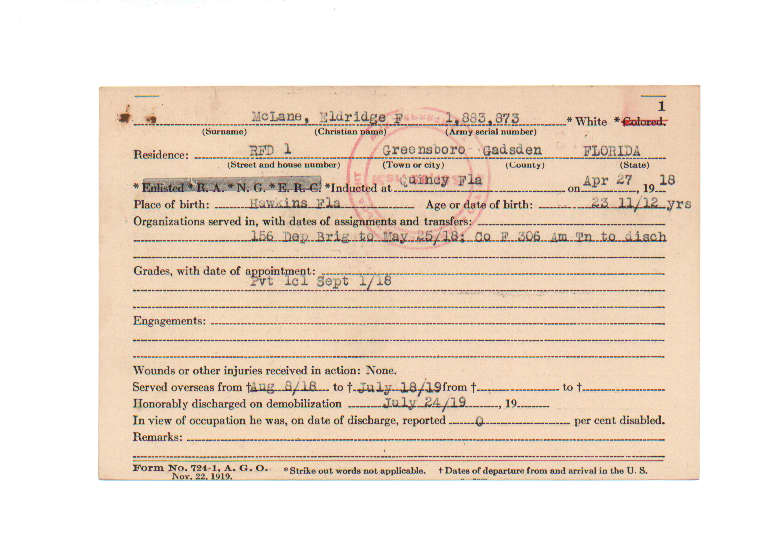 1
McLane, Eldridge F 1,883,873 * White * Colored.
(Surname) (Christian name) (Army serial number)
Residence: RFD 1 Greensboro Gadsden FLORIDA
(Street and house number) (Town or city) (County) (State)
* Enlisted * R. A. * N. G. * E. R. C. * Inducted at Quincy Fla on Apr 27, 1918
Place of birth: Hawkins Fla Age or date of birth: 23 11/12 yrs
Organizations served in, with dates of assignments and transfers:
156 Dep Brig to May 25/18; Co F 306 Am Tn to disch
Grades, with date of appointment:
Pvt 1cl Sept 1/18
Engagements:
Wounds or other injuries received in action: None.
Served overseas from † Aug 8/18 to † July 18/19 from † to †
Honorably discharged on demobilization July 24/19, 19
In view of occupation he was, on date of discharge, reported 0 per cent disabled.
Remarks:
Form No. 724-1, A. G. O. * Strike out words not applicable. † Dates of departure from and arrival in the U. S.
Nov. 22, 1919.